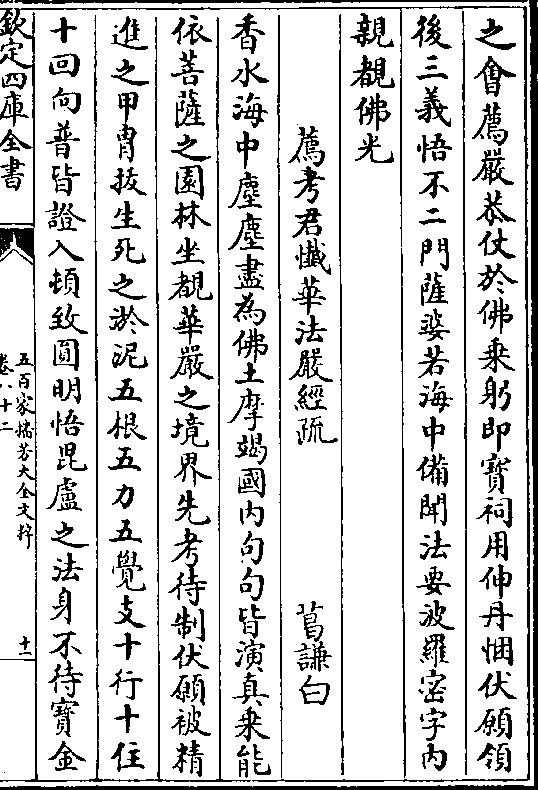 之會薦嚴恭仗於佛乗躬即寳祠用伸丹悃伏願領
後三義悟不二門薩婆若海中備聞法要波羅宻字内
親覩佛光
薦考君懺華法嚴經疏 葛謙白
香水海中塵塵盡為佛土摩竭國内句句皆演真乗能
依菩薩之園林坐覩華嚴之境界先考待制伏願被精
進之甲胄拔生死之淤泥五根五力五覺支十行十住
十回向普皆證入頓致圓明悟毘盧之法身不待寳金
欽定四庫全書
五百家播芳大全文粹
卷八十二
十一